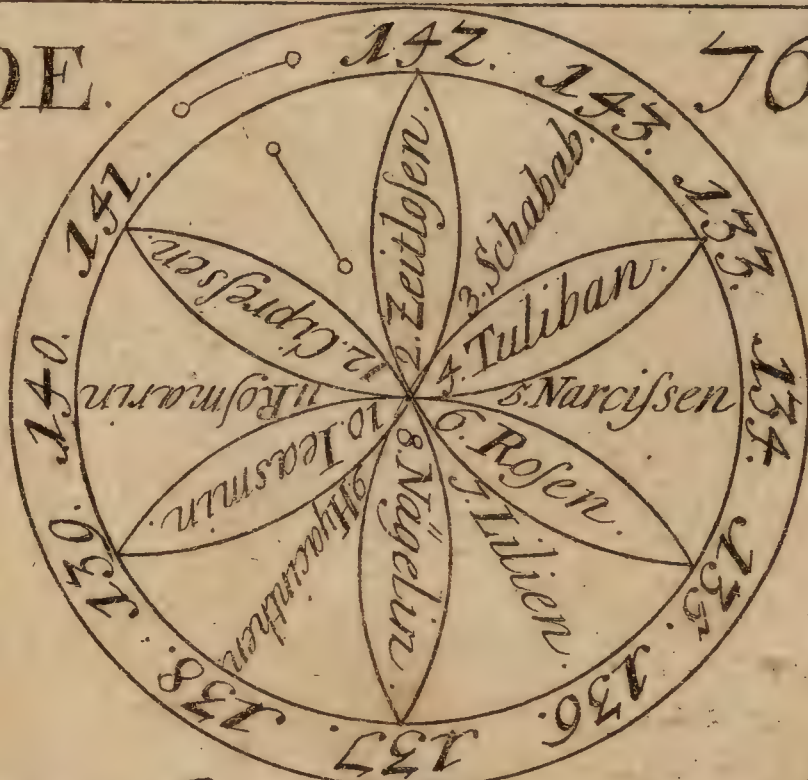 DE.
76
142.
143.
133.
134.
135.
136.
137.
138.
139.
140.
141.
2. Zeitloſen.
3. Schabab.
4. Tuliban.
5. Narciſsen
6. Roſen.
7. Lilien.
8. Nägelin.
9. Hyacinthen
10. Ieasmin.
11 Roſmarin
12. Cipreſsen.